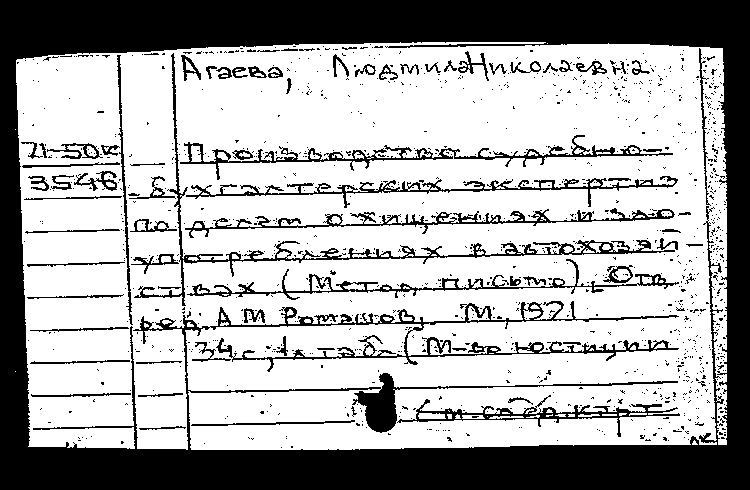 Агаева, Людмила Николаевна
71-50к Производство судебно-
3546 -бухгалтерских экспертиз
по делам о хищениях и зло-
употреблениях в автохозяй-
ствах (Метод. письмо). Отв.
ред. А М Ромашов. М., 1971
34 с., 1 л табл (М-во юстиции
См. след. карт
лк